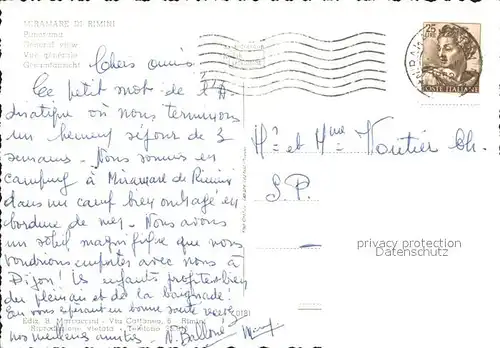 MIRAMARE DI RIMINI
Panorama
General view
Vue générale
Gesamtansicht
Chers amis
Ce petit mot de l'A
driatique où nous terminons
un heureux séjour de 3
semaines. Nous sommes en
camping à Miramare de Rimini
dans un camp bien ombragé en
bordure de mer. Nous avons
un soleil magnifique que nous
voudrions emporter avec nous à
Dijon! Les enfants profitent bien
du plein air et de la baignade!
En vous espérant en bonne santé recevez
nos meilleures amitiés.
25
LIRE
POSTE ITALIANE
Mr et Mme Voutier Ch.
S.P.
privacy protection
Datenschutz
Ediz. B. Marconi - Via Cattaneo, - Rimini
Riproduzione vietata - Telefono